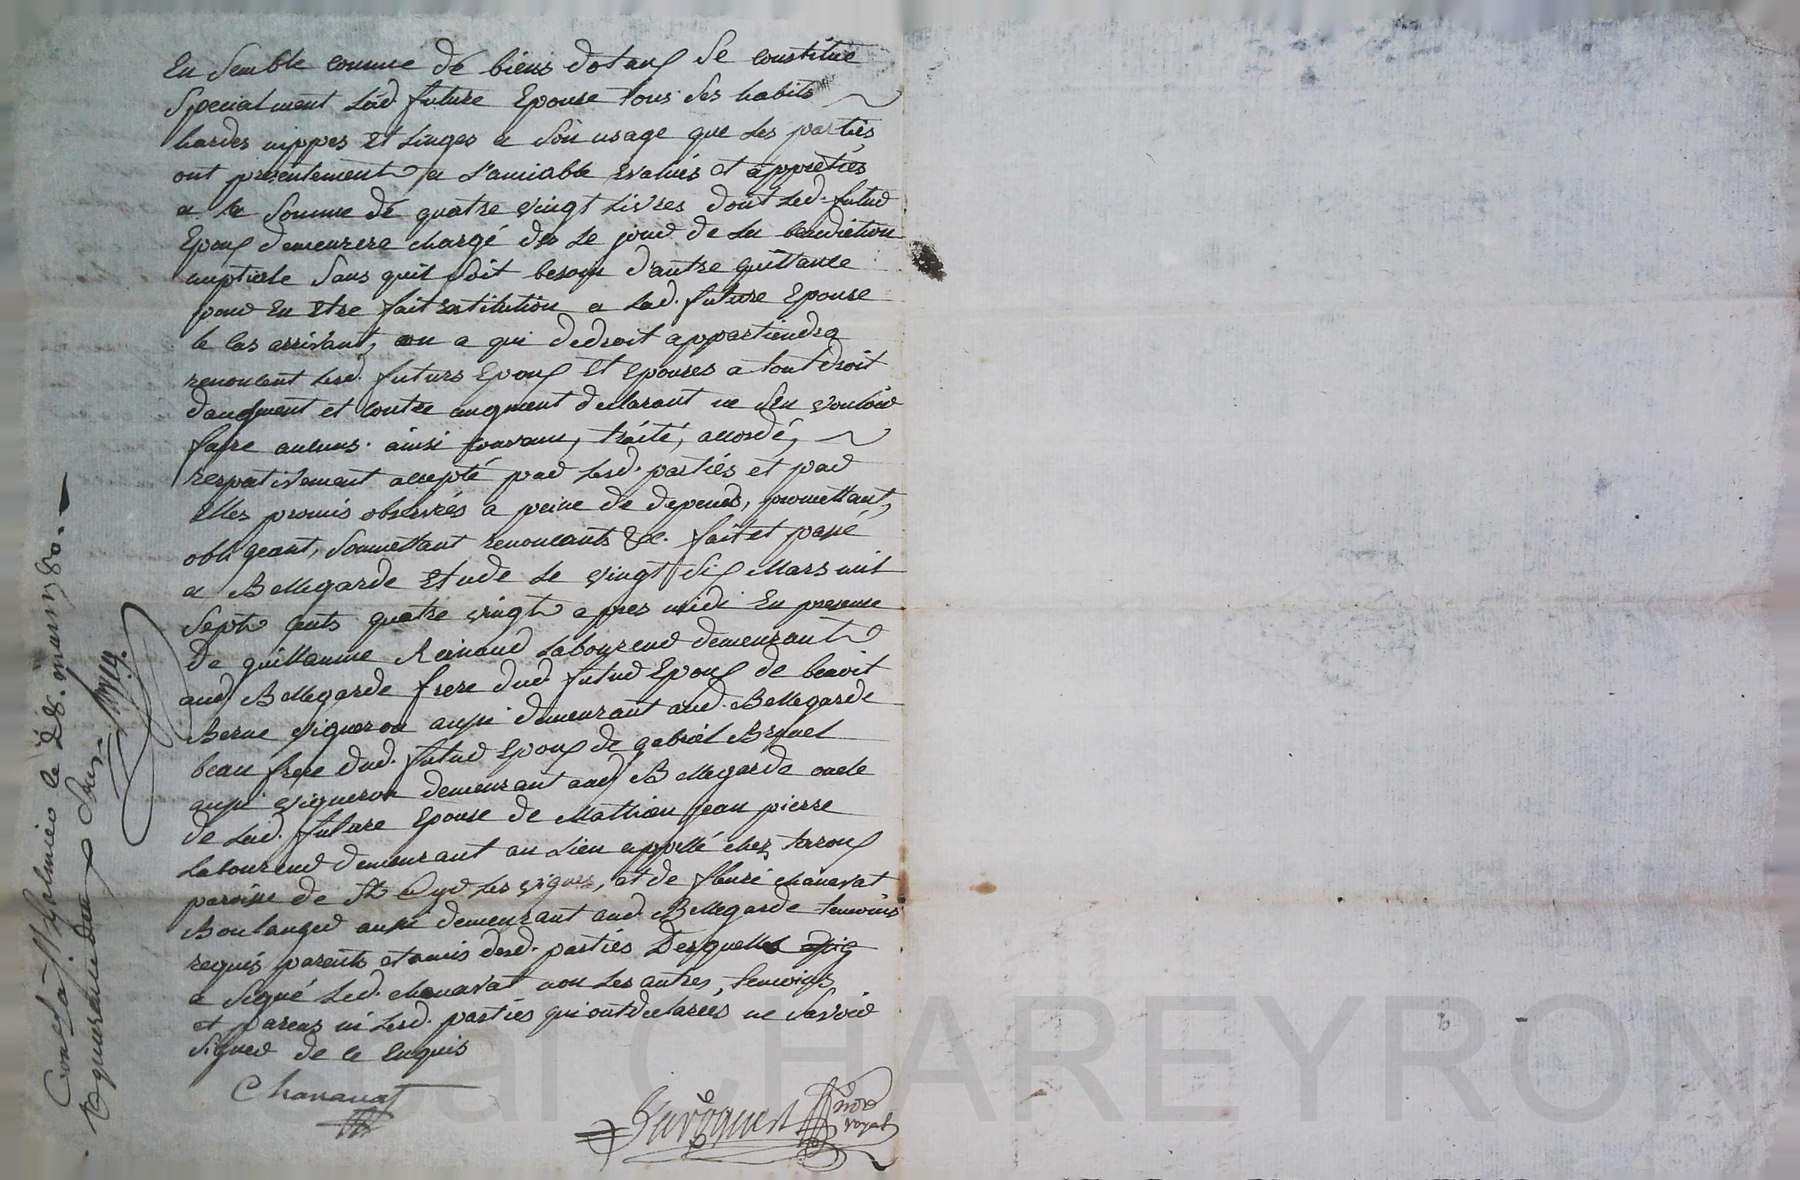 En semble comme de biens dotaux se constitue
specialment lad. future Epouse tous ses habits
hardes nippes et Linges a son usage que les parties
ont presentement a l'amiable evalués et apprétiés
a la somme de quatre vingt Livres dont led. futur
Epoux demeurera chargé des le jour de la benediction
nuptiale sans quil soit besoin d'autre quittance
pour En Etre fait restitution a lad. future Epouse
le cas arrivant, ou a qui de droit appartiendra
renoncent lesd. futurs Epoux Et epouses a tout droit
daugment et contre augment declarant ne sen vouloir
faire aucuns. ainsi convenu, traité, accordé,
respectivement accepté par lesd. parties et par
Elles promis observés a peine de depends, promettant,
obligeant, soumettant renonceants &c. fait et passé
a Bellegarde Etude le vingt six Mars mil
sept cents quatre vingt apres midi En presence
De guillaume Reinaud Laboureur demeurant
aud. Bellegarde frere dud. futur Epoux de benoit
Berne vigneron aussi demeurant aud. Bellegarde
beau frere dud. futur Epoux de gabriel Brunel
aussi vigneron demeurant aud. Bellegarde oncle
de lad. future Epouse de Mathieu jean pierre
Laboureur demeurant au Lieu appellé chez
paroisse de St Cyr Les vignes, et de fleuri chanavat
Boulanger aussi demeurant aud. Bellegarde temoins
requis parents et amis desd. parties Desquelles
a signé led. chanavat non Les autres, temoins
et parens ni lesd. parties qui ont declarées ne savoir
signer de ce Enquis
Chanavat
not
royal
Con.lé à St Galmier le 28. mars 1780.
CHAREYRON